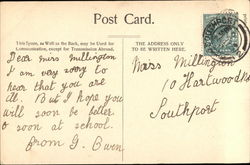 Post Card.
This Space, as Well as the Back, may be Used for
Communication, except for Transmission Abroad.
THE ADDRESS ONLY
TO BE WRITTEN HERE.
Dear Miss Millington
I am very sorry to
hear that you are
ill. But I hope you
will soon be better
& soon at school.
from G. Owen
Miss Millington
10 Hartwood Rd
Southport